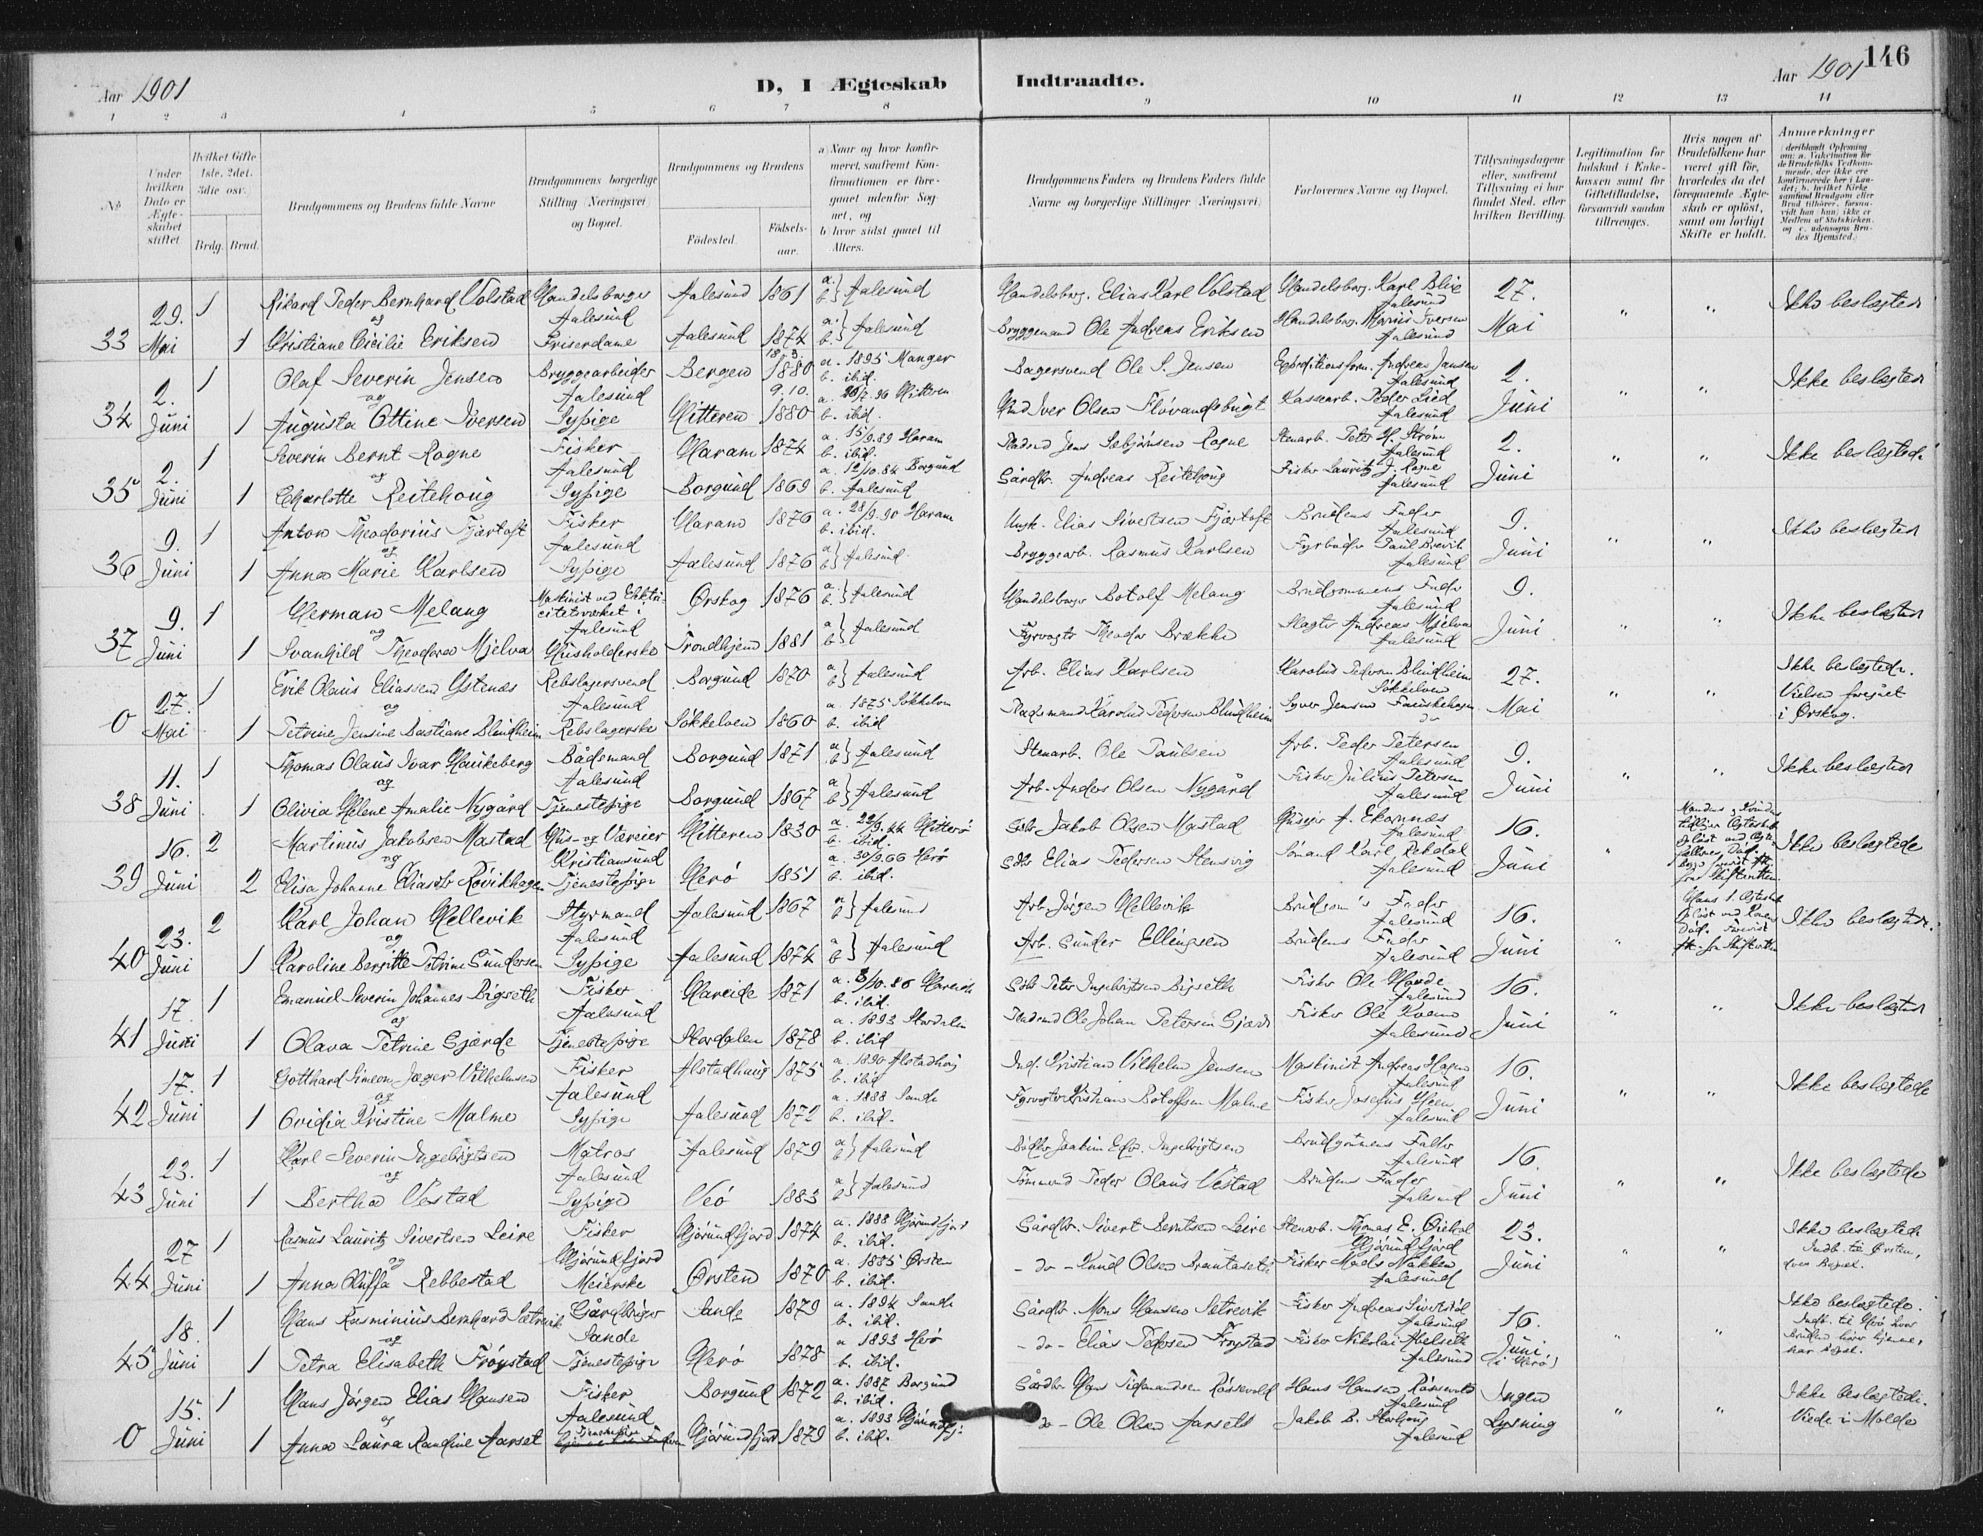 Aar 1901
D, I Ægteskab
Indtraadte.
Aar 1901
146
1 2 3 4 5 6 7 8 9 10 11 12 13 14
No
Under hvilken Dato er Ægteskabet stiftet
Hvilket Gifte 1ste, 2det, 3die osv.
Brdg. Brud.
Brudgommens og Brudens fulde Navne
Brudgommens borgerlige Stilling Næringsvei og Bopæl.
Brudgommens og Brudens
Fødested.
Fødselsaar.
a) Naar og hvor konfirmeret, saafremt Konfirmationen er foregaaet udenfor Sognet, og
b) hvor sidst gaaet til Alters.
Brudgommens Faders og Brudens Faders fulde Navne og borgerlige Stillinger (Næringsvei)
Forlovernes Navne og Bopæl.
Tillysningsdagene eller, saafremt Tillysning ei har fundet Sted, efter hvilken Bevilling.
Legitimation for Indskud i Enkekassen samt for Giftetilladelse, forsaavidt saadan tiltrænges.
Hvis nogen af Brudefolkene har været gift før, hvorledes da det foregaaende Ægteskab er opløst, samt om lovligt Skifte er holdt.
Anmerkninger
33 29. Mai 1 Rikard Peder Bernhard Volstad Handelsborger Aalesund Aalesund 1861 a. b. } Aalesund Handelsborg. Elias Karl Volstad Handelsborg. Karl Blix Aalesund 27. Mai " " Ikke beslægtede
og
1 Kristiane Cicilie Eriksen Friserdame Aalesund 1874 a. b. } Aalesund Bryggemand Ole Andreas Eriksen Handelsborg. Marius Iversen Aalesund
34 2. Juni 1 Olaf Severin Jensen Bryggearbeider Aalesund Bergen 18.3. 1880 a. 1895 Manger b. ibid. Bagersvend Ole S. Jensen Andreas Jansen Aalesund 2. Juni " " Ikke beslægtede
og
1 Augusta Ottine Iversen Sypige Hitteren 9.10. 1880 b. ibid. Iver Olsen Kassearb. Peder Lied Aalesund
35 2. Juni 1 Severin Bernt Rogne Fisker Aalesund Haram 1874 a. 15/9.89 Haram b. ibid. Jens Rogne Stenarb. Peter H. Strøm Aalesund 2. Juni " " Ikke beslægtede
og
1 Charlotte Reitehoug Sypige Borgund 1869 a. 12/10.84 Borgund b. Aalesund Gårdbr. Andreas Reitehoug Fisker Lauritz J. Rogne Aalesund
36 9. Juni 1 Anton Theodorius Fjørtoft Fisker Aalesund Haram 1876 a. 28/9.90 Haram b. ibid. Elias Sivertsen Fjørtoft Brudens Fader Aalesund 9. Juni " " Ikke beslægtede
og
1 Anna Marie Karlsen Sypige Aalesund 1876 a. b. } Aalesund Bryggearb. Rasmus Karlsen Fyrbøder Paul Brevik Aalesund
37 9. Juni 1 Herman Melang Maskinist ved Elektricitetsværket i Aalesund Ørskog 1876 a. b. } Aalesund Handelsborger Botolf Melang Brudgommens Fader Aalesund 9. Juni " " Ikke beslægtede
og
1 Svanhild Theodora Mjelva Husholderske Trondhjem 1881 a. b. } Aalesund Fyrvogter Theodor Brække Slagter Andreas Mjelva Aalesund
0 27. Mai 1 Erik Olaus Eliassen Ystenæs Rebslagersvend Aalesund Borgund 1870 a. b. } Aalesund Arb. Elias Karlsen Karolus Pedersen Blindheim Søkkelven 27. Mai " " Ikke beslægtede. Vielsen foregået i Ørskog.
og
1 Petrine Jensine Bastiane Blindheim Rebslagerske Søkkelven 1860 a. 1875 Søkkelven b. ibid Pladsmand Karolus Pedersen Blindheim Syver Jensen
38 11. Juni 1 Thomas Olaus Ivar Haukeberg Bådsmand Aalesund Borgund 1871 a. b. } Aalesund Stenarb. Ole Paulsen Arb. Peder Petersen Aalesund 9. Juni " " Ikke beslægtede
og
1 Olivia Helene Amalie Nygård Tjenestepige Borgund 1867 a. b. } Aalesund Arb. Anders Olsen Nygård Fisker Julius Petersen Aalesund
39 16. Juni 2 Martinus Jakobsen Mastad Hus- og Væreier Kristiansund Hitteren 1830 a. 22/9.44 Hitterø b. ibid. Gdbr Jakob Olsen Mastad A. Ekornnæs Aalesund 16. Juni " Ikke beslægtede
og
2 Elisa Johanne Eliasdtr Røvikhagen Tjenestepige Herø 1851 a. 30/9.66 Herø b. ibid. Gdbr Elias Pedersen Stensvig Sømand Karl Rekdal Aalesund
40 23. Juni 2 Karl Johan Hellevik Styrmand Aalesund Aalesund 1867 a. b. } Aalesund Arb. Jørgen Hellevik Brudgom's Fader Aalesund 16. Juni " Ikke beslægtede.
og
1 Karoline Bergitte Petrine Gundersen Sypige Aalesund 1874 a. b. } Aalesund Arb. Gunder Ellingsen Brudens Fader Aalesund
41 17. Juni 1 Emanuel Severin Johannes Bigseth Fisker Aalesund Hareide 1871 a. 3/10.86 Hareide b. ibid. Gdbr Peter Ingebrigtsen Bigseth Fisker Ole Hovde Aalesund 16. Juni " " Ikke beslægtede
og
1 Olava Petrine Gjærde Tjenestepige Stordalen 1878 a. 1893 Stordalen b. ibid Pladsmd Ole Johan Petersen Gjærde Fisker Ole Kvam Aalesund
42 17. Juni 1 Gotthard Simeon Jæger Vilhelmsen Fisker Aalesund Alstadhaug 1875 a. 1890 Alstadhoug b. ibid Ind. Kristian Vilhelm Jensen Maskinist Andreas Hagen Aalesund 16. Juni " " Ikke beslægtede
og
1 Ovidia Kristine Malme Sypige Aalesund 1872 a. 1888 Sande b. ibid. Fyrvogter Kristian Botolfsen Malme Fisker Josefus Aalesund
43 23. Juni 1 Karl Severin Ingebrigtsen Matros Aalesund Aalesund 1879 a. b. } Aalesund Bødker Joakim Edv. Ingebrigtsen Brudgommens Fader Aalesund 16. Juni " " Ikke beslægtede
og
1 Bertha Vestad Sypige Veø 1883 a. b. } Aalesund Tømmermd Peder Olaus Vestad Brudens Fader Aalesund
44 27 Juni 1 Rasmus Lauritz Sivertsen Leire Fisker Hjørundfjord Hjørundfjord 1874 a. 1888 Hjørundfjord b. ibid. Gårdbr. Sivert Berntsen Leire Stenarb. Thomas E. Hjørundfjord 23. Juni " " Ikke beslægtede Indb. til Ørsten,
og
1 Anna Oluffa Rebbestad Meierske Ørsten 1870 a. 1885 Ørsten b. ibid. - do - Knud Olsen Fisker Mads Nakken Aalesund
45 18. Juni 1 Hans Rasminius Bernhard Sætrevik Gårdbruger Sande Sande 1879 a. 1894 Sande b. ibid. Gårdbr. Mons Hansen Sætrevik Fisker Andreas Aalesund 16. Juni (i Herø) " " Ikke beslægtede. Indb. til Herø hvor Bruden har hjemme,
og
1 Petra Elisabeth Frøystad Tjenestepige Herø 1878 a. 1893 Herø b. ibid. - do - Elias Pedersen Frøystad Fisker Nikolai Aalesund
0 15. Juni 1 Hans Jørgen Elias Hansen Fisker Aalesund Borgund 1872 a. 1887 Borgund b. ibid. Gårdbr. Hans Røssevold Hans Hansen Røssevold Aalesund Ingen Lysning " " Ikke beslægtede. Viede i Molde
og
1 Anna Laura Randine Aarset Tjenestepige Hjørundfjord 1879 a. 1893 Hjørundfj. b. ibid. - do - Ole Olsen Aarseth Jakob B. Aalesund